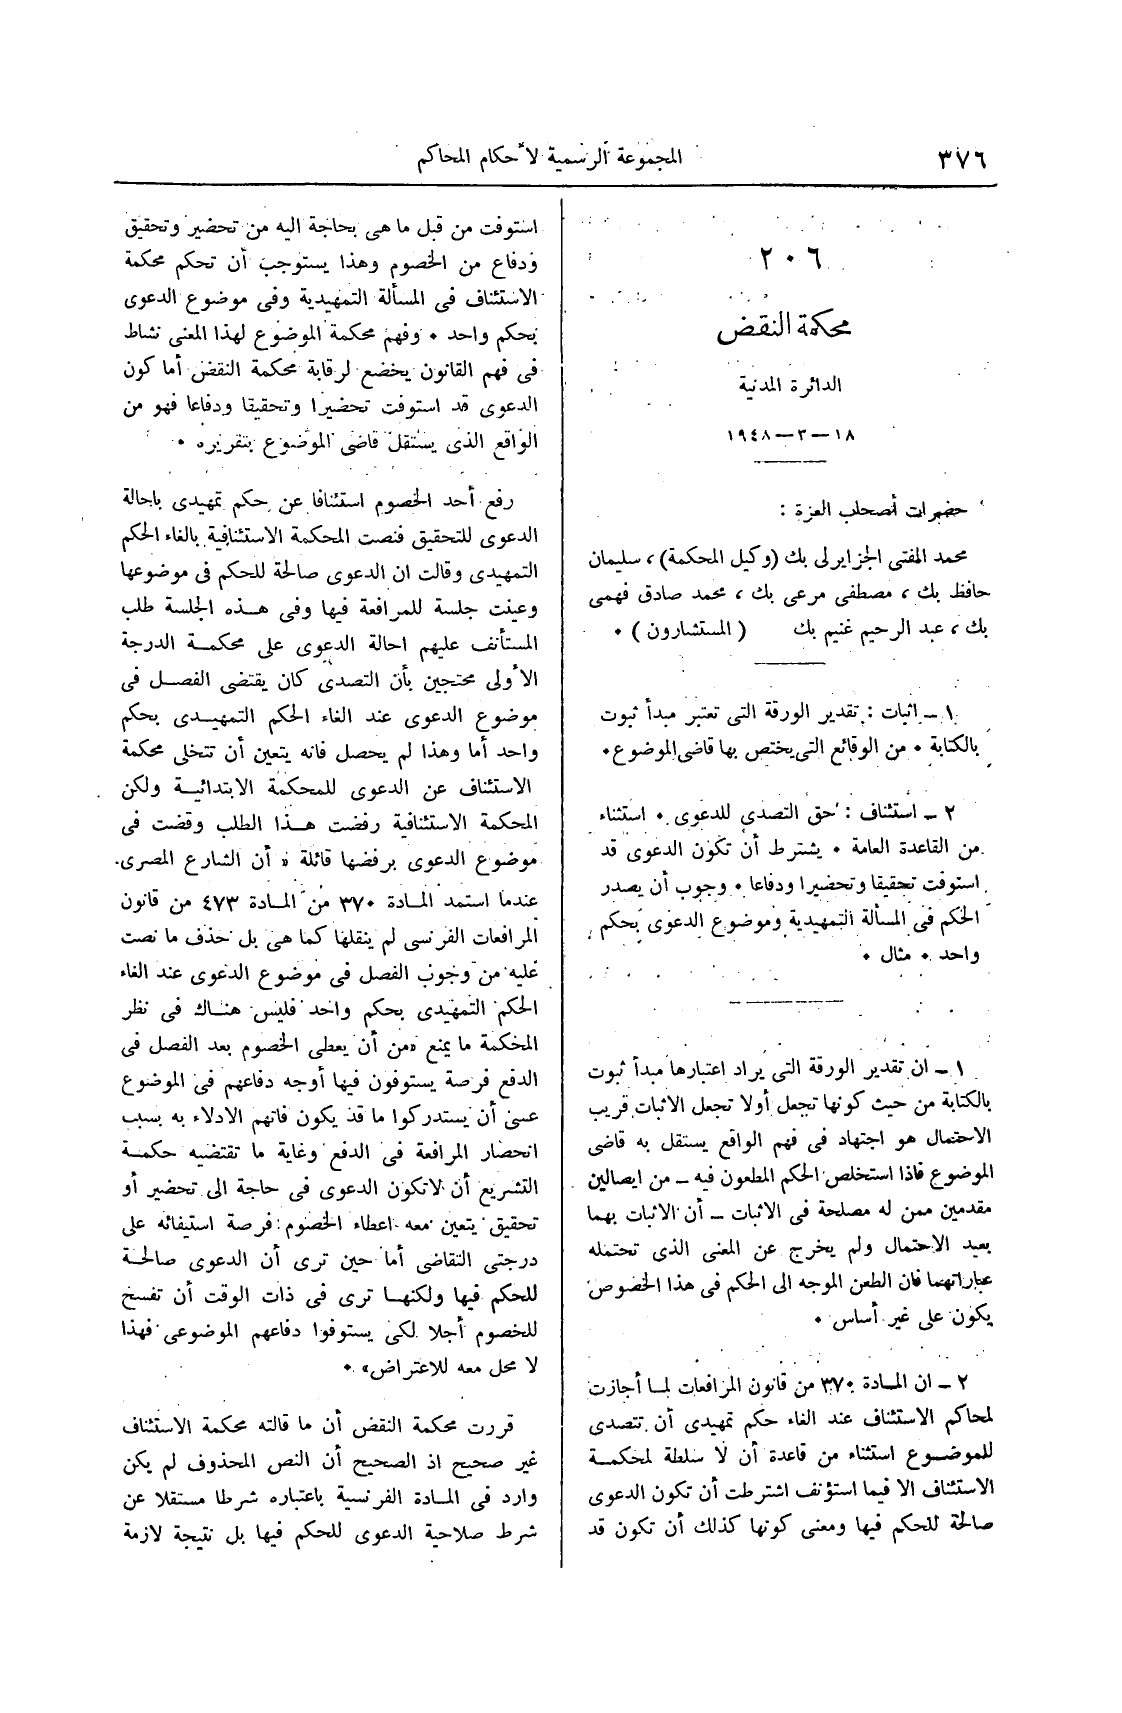 ٣٧٦
المجموعة الرسمية لأحكام المحاكم
٢٠٦
محكمة النقض
الدائرة المدنية
١٨ — ٣ — ١٩٤٨
حضرات أصحاب العزة :
محمد المفتى الجزايرلى بك (وكيل المحكمة) ، سليمان
حافظ بك ، مصطفى مرعى بك ، محمد صادق فهمى
بك ، عبد الرحيم غنيم بك ( المستشارون ) ٠
١ ــ اثبات : تقدير الورقة التى تعتبر مبدأ ثبوت
بالكتابة ٠ من الوقائع التى يختص بها قاضى الموضوع ٠
٢ ــ استئناف : حق التصدى للدعوى ٠ استثناء
من القاعدة العامة ٠ يشترط أن تكون الدعوى قد
استوفت تحقيقا وتحضيرا ودفاعا ٠ وجوب أن يصدر
الحكم فى المسألة التمهيدية وموضوع الدعوى بحكم
واحد ٠ مثال ٠
١ ــ ان تقدير الورقة التى يراد اعتبارها مبدأ ثبوت
بالكتابة من حيث كونها تجعل أولا تجعل الاثبات قريب
الاحتمال هو اجتهاد فى فهم الواقع يستقل به قاضى
الموضوع فاذا استخلص الحكم المطعون فيه ــ من ايصالين
مقدمين ممن له مصلحة فى الاثبات ــ أن الاثبات بهما
بعيد الاحتمال ولم يخرج عن المعنى الذى تحتمله
عباراتهما فان الطعن الموجه الى الحكم فى هذا الخصوص
يكون على غير أساس ٠
٢ ــ ان المادة ٣٧٠ من قانون المرافعات لما أجازت
لمحاكم الاستئناف عند الغاء حكم تمهيدى أن تتصدى
للموضوع استثناء من قاعدة أن لا سلطة لمحكمة
الاستئناف الا فيما استؤنف اشترطت أن تكون الدعوى
صالحة للحكم فيها ومعنى كونها كذلك أن تكون قد
استوفت من قبل ما هى بحاجة اليه من تحضير وتحقيق
ودفاع من الخصوم وهذا يستوجب أن تحكم محكمة
الاستئناف فى المسألة التمهيدية وفى موضوع الدعوى
بحكم واحد ٠ وفهم محكمة الموضوع لهذا المعنى نشاط
فى فهم القانون يخضع لرقابة محكمة النقض أما كون
الدعوى قد استوفت تحضيرا وتحقيقا ودفاعا فهو من
الواقع الذى يستقل قاضى الموضوع بتقريره ٠
رفع أحد الخصوم استئنافا عن حكم تمهيدى باحالة
الدعوى للتحقيق فنصت المحكمة الاستئنافية بالغاء الحكم
التمهيدى وقالت ان الدعوى صالحة للحكم فى موضوعها
وعينت جلسة للمرافعة فيها وفى هذه الجلسة طلب
المستأنف عليهم احالة الدعوى على محكمة الدرجة
الأولى محتجين بأن التصدى كان يقتضى الفصل فى
موضوع الدعوى عند الغاء الحكم التمهيدى بحكم
واحد أما وهذا لم يحصل فانه يتعين أن تتخلى محكمة
الاستئناف عن الدعوى للمحكمة الابتدائية ولكن
المحكمة الاستئنافية رفضت هذا الطلب وقضت فى
موضوع الدعوى برفضها قائلة « أن الشارع المصرى
عندما استمد المادة ٣٧٠ من المادة ٤٧٣ من قانون
المرافعات الفرنسى لم ينقلها كما هى بل حذف ما نصت
عليه من وجوب الفصل فى موضوع الدعوى عند الغاء
الحكم التمهيدى بحكم واحد فليس هناك فى نظر
المحكمة ما يمنع «من أن يعطى الخصوم بعد الفصل فى
الدفع فرصة يستوفون فيها أوجه دفاعهم فى الموضوع
عسى أن يستدركوا ما قد يكون فاتهم الادلاء به بسبب
انحصار المرافعة فى الدفع وغاية ما تقتضيه حكمة
التشريع أن لاتكون الدعوى فى حاجة الى تحضير أو
تحقيق يتعين معه اعطاء الخصوم فرصة استيفائه على
درجتى التقاضى أما حين ترى أن الدعوى صالحة
للحكم فيها ولكنها ترى فى ذات الوقت أن تفسخ
للخصوم أجلا لكى يستوفوا دفاعهم الموضوعى فهذا
لا محل معه للاعتراض» ٠
قررت محكمة النقض أن ما قالته محكمة الاستئناف
غير صحيح اذ الصحيح أن النص المحذوف لم يكن
وارد فى المادة الفرنسية باعتباره شرطا مستقلا عن
شرط صلاحية الدعوى للحكم فيها بل نتيجة لازمة